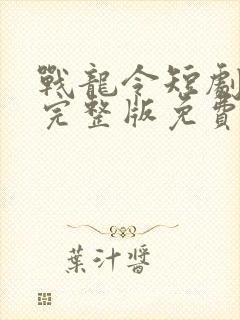 戰龍令短劇
完整版免費
葉汁醬